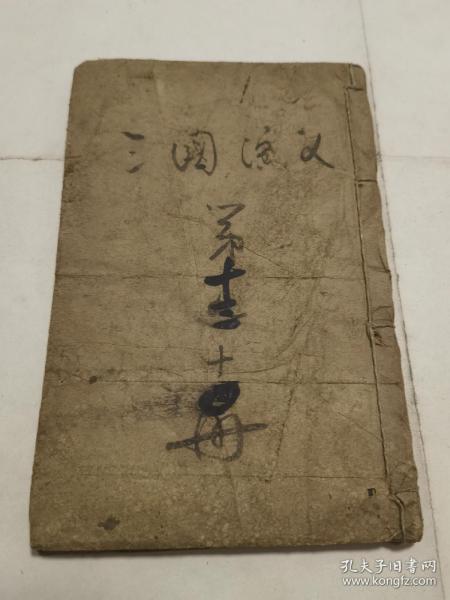 三國演义
第十三十四册
孔夫子旧书网
www.kongfz.com